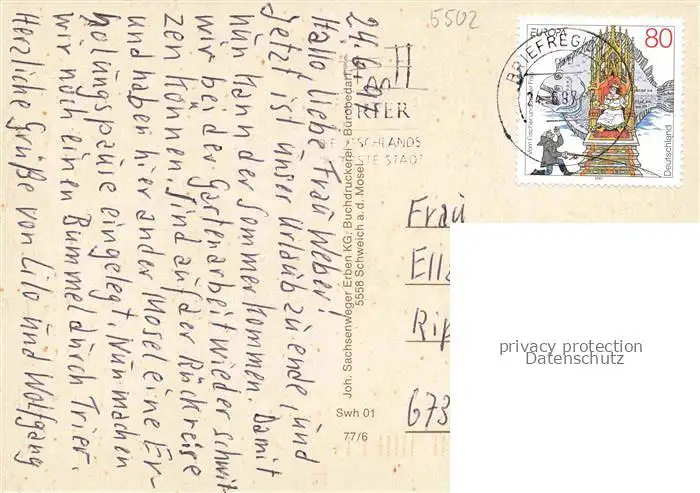 24.6.97
Hallo liebe Frau Weber!
Jetzt ist unser Urlaub zu ende, und
nun kann der Sommer kommen. Damit
wir bei der Gartenarbeit wieder schwit-
zen können. Sind auf der Rückreise
und haben hier an der Mosel eine Er-
holungspause eingelegt. Nun machen
wir noch einen Bummel durch Trier.
Herzliche Grüße von Lilo und Wolfgang
Joh. Sachsenweger Erben KG, Buchdruckerei, Bürobedarf
5558 Schweich a.d. Mosel
Swh 01
77/6
5502
EUROPA
80
Deutschland
BRIEFREGI
STE STADT
Frau
Ella
Rip
673
privacy protection
Datenschutz